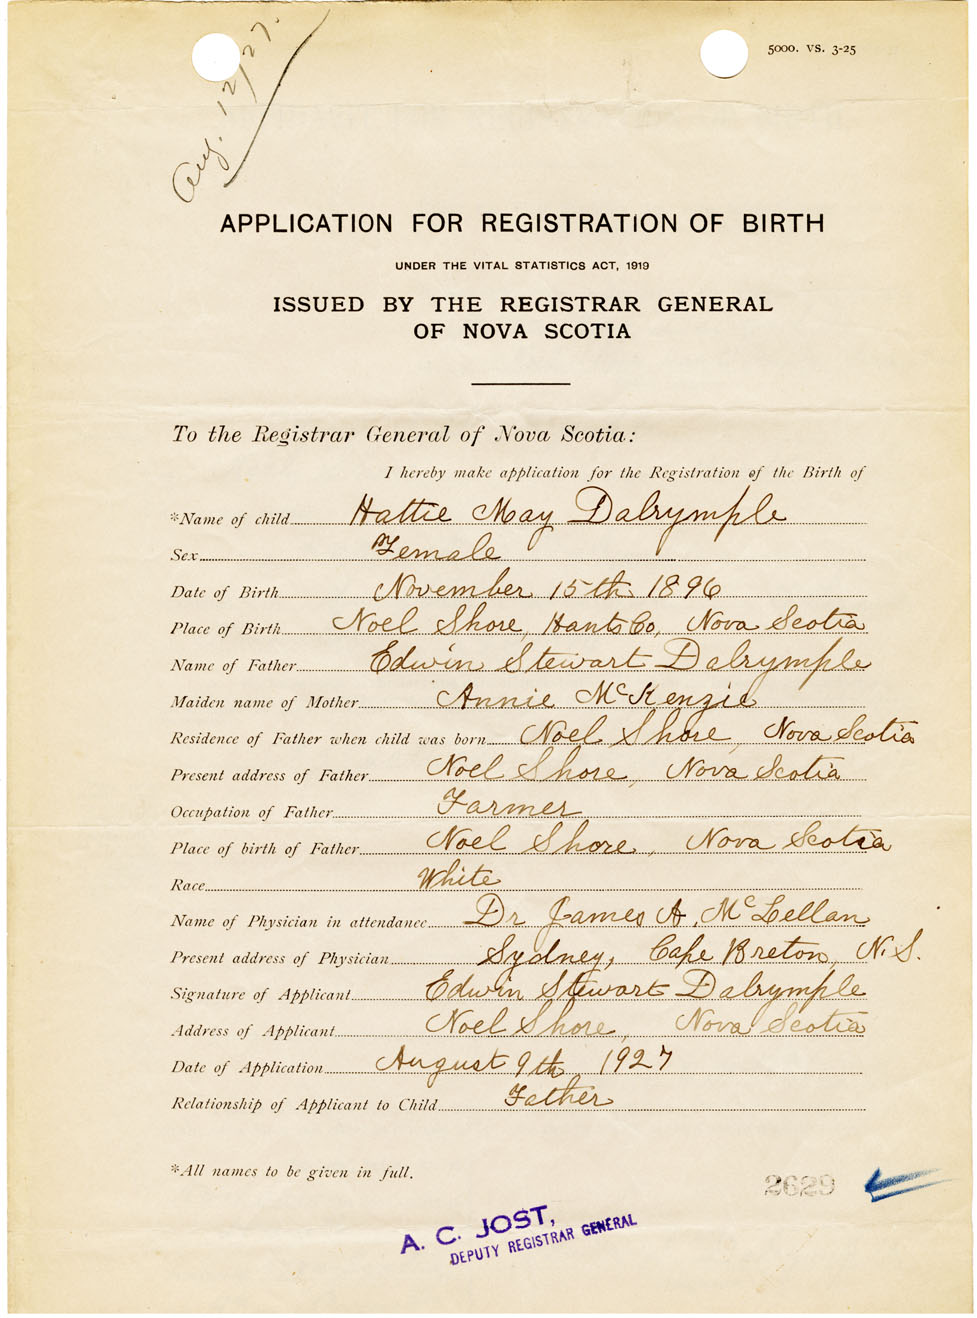 Aug. 12/27.
5000. VS. 3-25
APPLICATION FOR REGISTRATION OF BIRTH
UNDER THE VITAL STATISTICS ACT, 1919
ISSUED BY THE REGISTRAR GENERAL
OF NOVA SCOTIA
To the Registrar General of Nova Scotia:
I hereby make application for the Registration of the Birth of
*Name of child Hattie May Dalrymple
Sex Female
Date of Birth November 15th 1896
Place of Birth Noel Shore, Hants Co, Nova Scotia
Name of Father Edwin Stewart Dalrymple
Maiden name of Mother Annie McKenzie
Residence of Father when child was born Noel Shore, Nova Scotia
Present address of Father Noel Shore, Nova Scotia
Occupation of Father Farmer
Place of birth of Father Noel Shore, Nova Scotia
Race White
Name of Physician in attendance Dr James A. McLellan
Present address of Physician Sydney, Cape Breton, N.S.
Signature of Applicant Edwin Stewart Dalrymple
Address of Applicant Noel Shore, Nova Scotia
Date of Application August 9th 1927
Relationship of Applicant to Child Father
*All names to be given in full.
2629
A. C. JOST,
DEPUTY REGISTRAR GENERAL